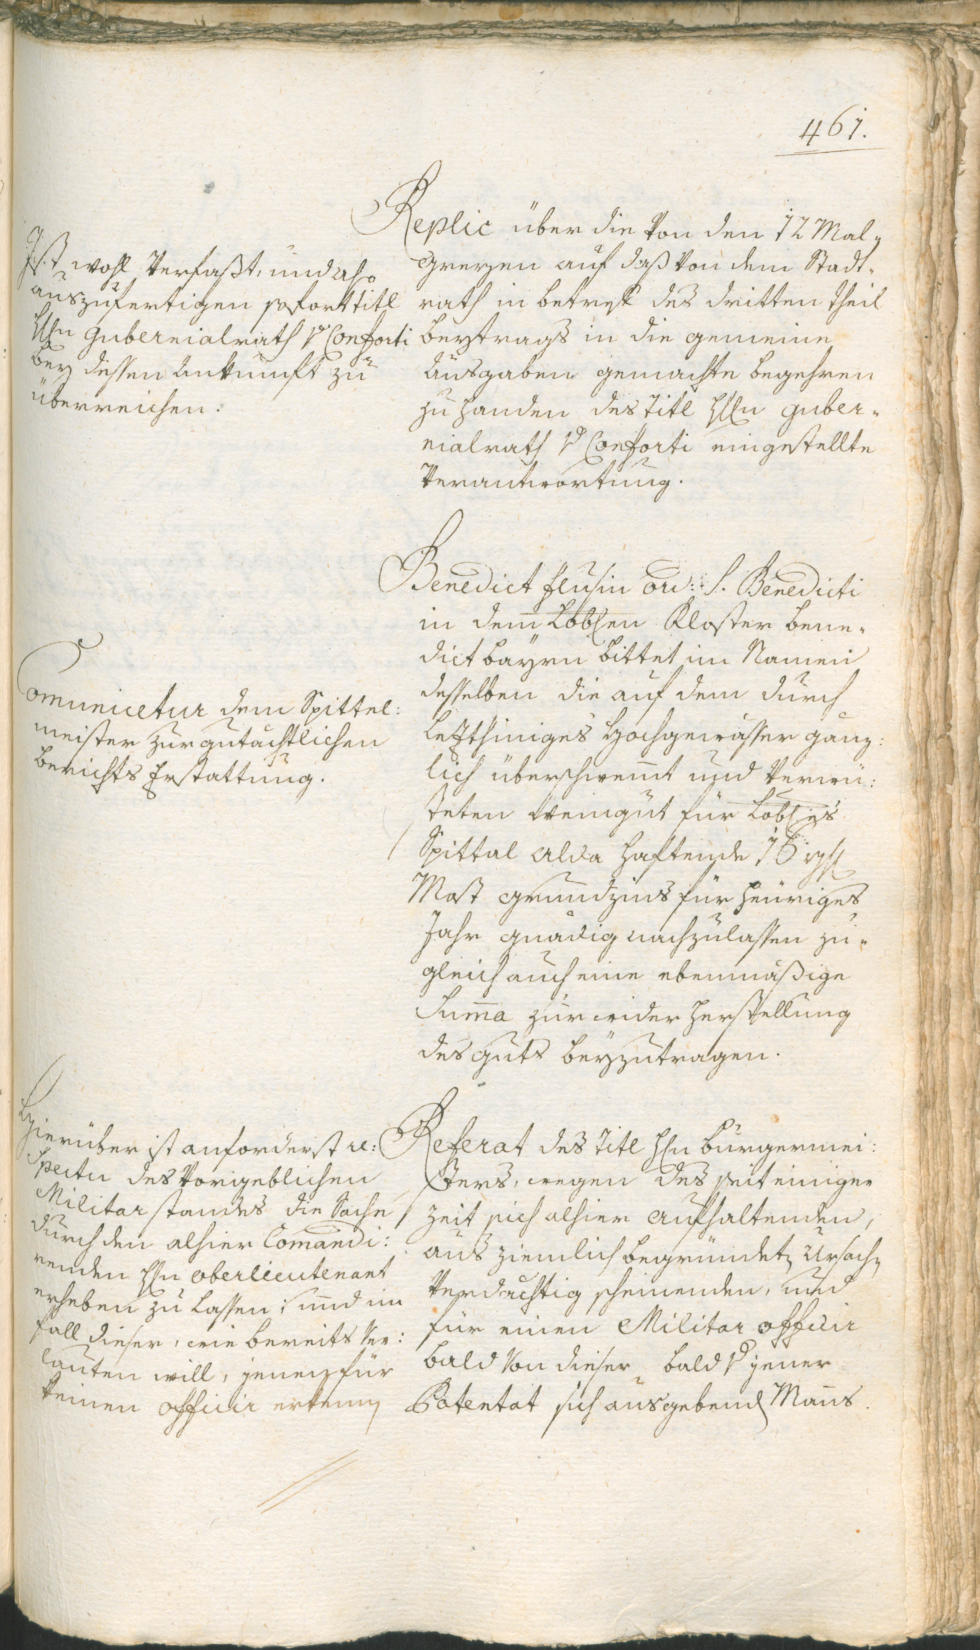 461.
Replic über die von den 12 Mal„
greyen auf das von dem Stadt„
rath in betref des dritten theil
beytrags in die gemeine
Ausgaben gemachte begehren
zu handen des Titl H̅n guber„
nialrath v Conforti eingestellte
Verantwortung.
Ist wohl verfaßt, und also
auszufertigen sofort titl
H̅n Gubernialrath v Conforti
bey dessen Ankunft zu
überreichen.
Benedict ord: S. Benedicti
in dem Löbl̅en Kloster bene„
dict bayrn bittet im Namen
desselben die auf dem durch
letzthiniges Hochgewässer gänz:
lich überschwemt und verwü:
steten weingut für Löbl̅es
Spittal alda haftende 16
Most grundzins für heüriges
Jahr gnädig nachzulassen zu„
gleich auch eine ebenmäßige
Sum̅a zur wider herstellung
des guts beyzutragen.
Com̅unicetur dem Spittel:
meister zur gutächtlichen
berichts Erstattung.
Referat des Titl H̅n bürgermei:
sters, wegen des seit einiger
zeit sich alhier aufhaltenden,
aus ziemlich begründet Ursach
verdächtig scheinenden, und
für einen Militar officir
bald von dieser bald v jener
Potentat sich ausgebend Man̅s.
Hierüber ist anforderst re:
spectu des vorgeblichen
Militar standes die Sache
durch den alhier Com̅andi:
renden H̅n oberlieutenant
erheben zu lassen; und im
fall dieser, wie bereits ver:
lauten will, jenen für
keinen officir erkenn